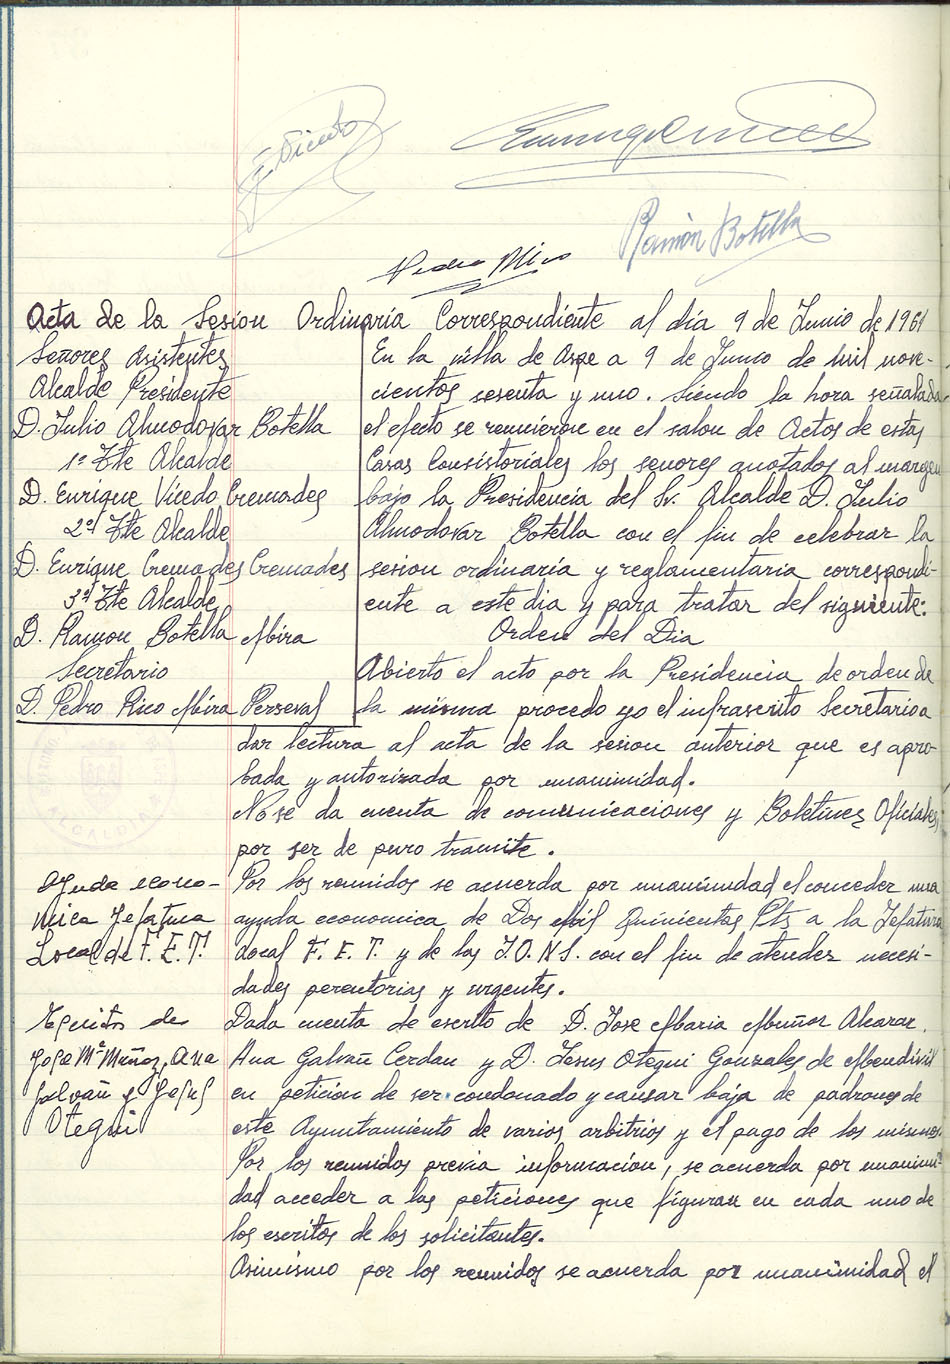 E Vicedo
Ramón Botella
Pedro Rico
Acta de la Sesion Ordinaria Correspondiente al dia 9 de Junio de 1961
Señores Asistentes
Alcalde Presidente
D. Julio Almodovar Botella
1º Tte Alcalde
D. Enrique Vicedo Cremades
2º Tte Alcalde
D. Enrique Cremades Cremades
3º Tte Alcalde
D. Ramon Botella Mira
Secretario
D. Pedro Rico Mira Perseval
En la villa de Aspe a 9 de Junio de mil nove-
cientos sesenta y uno. Siendo la hora señalada
el efecto se reunieron en el salon de Actos de estas
Casas Consistoriales los señores anotados al margen
bajo la Presidencia del Sr. Alcalde D. Julio
Almodovar Botella con el fin de celebrar la
sesion ordinaria y reglamentaria correspondi-
ente a este dia y para tratar del siguiente:
Orden del Dia
Abierto el acto por la Presidencia de orden de
la misma procedo yo el infrascrito Secretario a
dar lectura al acta de la sesion anterior que es apro-
bada y autorizada por unanimidad.
No se da cuenta de comunicaciones y Boletines Oficiales
por ser de puro tramite.
Ayuda econo-
mica Jefatura
Local de F. E. T.
Por los reunidos se acuerda por unanimidad el conceder una
ayuda economica de Dos Mil Quinientas Pts a la Jefatura
Local F. E. T. y de las J.O.N.S. con el fin de atender necesi-
dades perentorias y urgentes.
Escritos de
Jose Mª Muñoz, Ana
Galvañ y Jesus
Otegui
Dada cuenta de escrito de D. Jose Maria Muñoz Alcaraz,
Ana Galvañ Cerdan y D. Jesus Otegui Gonzales de Mendivil
en peticion de ser condonado y causar baja de padrones de
este Ayuntamiento de varios arbitrios y el pago de los mismos.
Por los reunidos previa informacion, se acuerda por unanimi-
dad acceder a las peticiones que figuran en cada uno de
los escritos de los solicitantes.
Asimismo por los reunidos se acuerda por unanimidad el